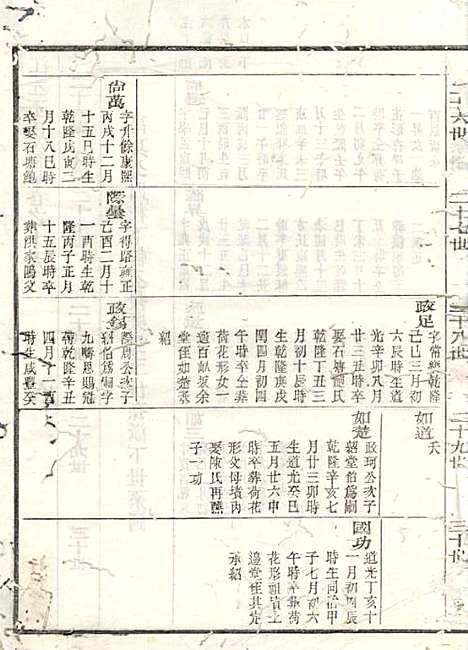 二十六世
二十七世
二十八世
二十九世
三十世
尚萬
字升餘康熙
丙戌十二月
十五巳時生
乾隆庚寅二
月十八巳時
卒娶石塘鮑
際曇
字得路雍正
己酉二月十
一酉時生乾
隆丙子正月
十五辰時卒
葬洪家鷗交
政足
字常樂乾隆
己巳三月初
六辰時生道
光辛卯八月
廿三五時卒
娶石
乾隆丁丑三
月初十辰時
生乾隆庚戌
閏四月初四
午時卒仝葬
荷花形女一
適百畝坂余
堂侄如楚承
紹
政
際周公次子
紹伯爲嗣字
九疇恩賜冠
帶乾隆辛丑
四月十一酉
時生咸豐癸
如道
夭
如楚
政珂公次子
紹堂伯爲嗣
乾隆辛亥七
月廿三卯時
生道光癸巳
五月廿六申
時卒葬荷花
形父母墳內
娶陳氏再醮
子一功
國功
道光丁亥十
一月初四辰
時生同治甲
子七月初六
午時卒葬荷
花形祖墳上
邉堂侄其光
承紹